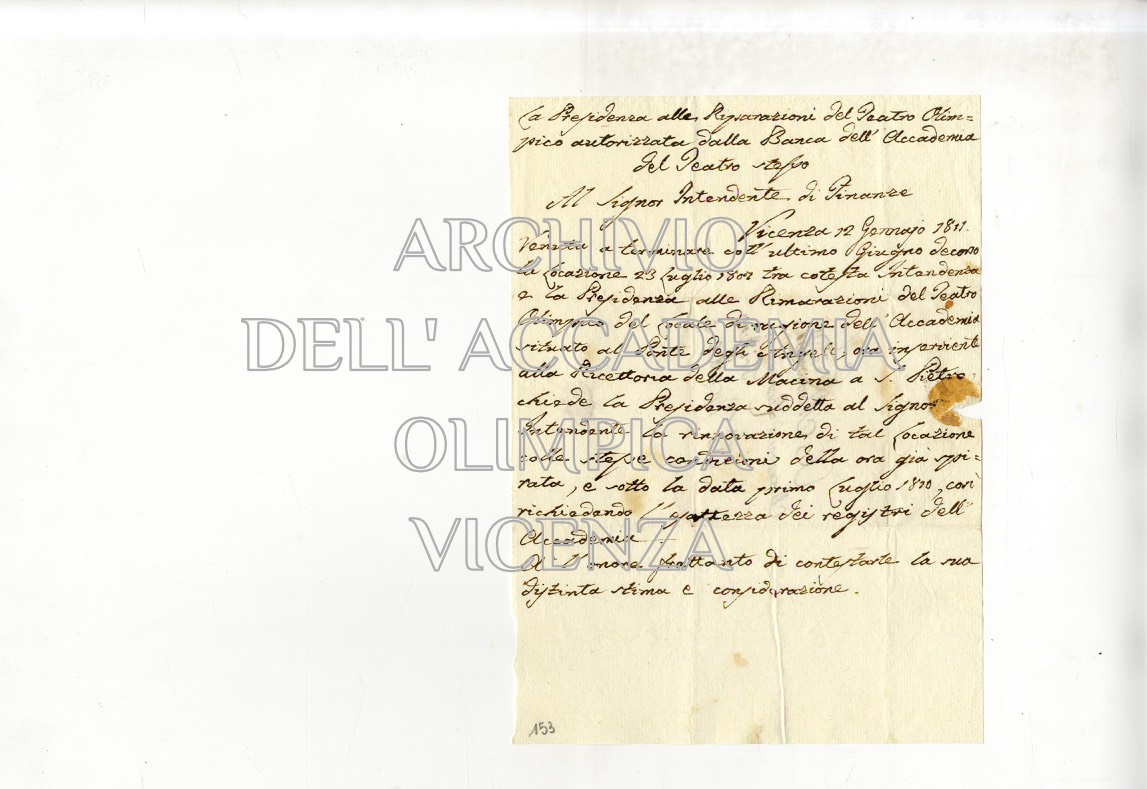 La Presidenza alle Riparazioni del Teatro Olim=
pico autorizzata dalla Banca dell' Accademia
del Teatro stesso
Al Signor Intendente di Finanze
Vicenza 12 Gennajo 1811.
Venuta a terminare coll' ultimo Giugno decorso
la Locazione 23 Luglio 1807 tra cotesta Intendenza
e la Presidenza alle Riparazioni del Teatro
Olimpico del Locale di ragione dell' Accademia
situato al Ponte degli Angeli, ora inserviente
alla Ricettoria della Macina a S. Pietro
chiede la Presidenza suddetta al Signor
Intendente la rinnovazione di tal Locazione
colle stesse condizioni della ora già spi=
rata, e sotto la data primo Luglio 1810, così
richiedendo l' esattezza dei registri dell'
Accademia.
A l' onore frattanto di contestarle la sua
distinta stima e considerazione.
153
ARCHIVIO
DELL' ACCADEMIA
OLIMPICA
VICENZA